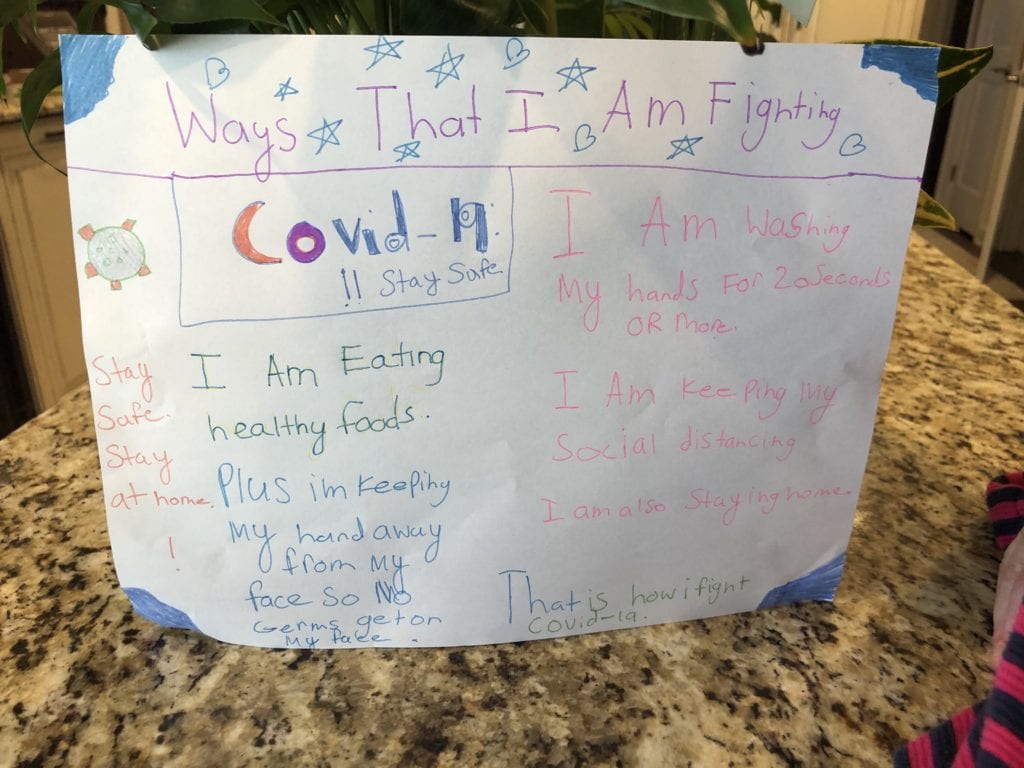 Ways That I Am Fighting
Covid-19:
!! Stay Safe
Stay
Safe.
Stay
at home.
!
I Am Eating
healthy foods.
Plus im keeping
My hand away
from My
face So No
Germs get on
My face.
I Am Washing
My hands For 20 Seconds
OR More.
I Am keeping My
Social distancing
I am also Staying home.
That is how i fight
Covid-19.